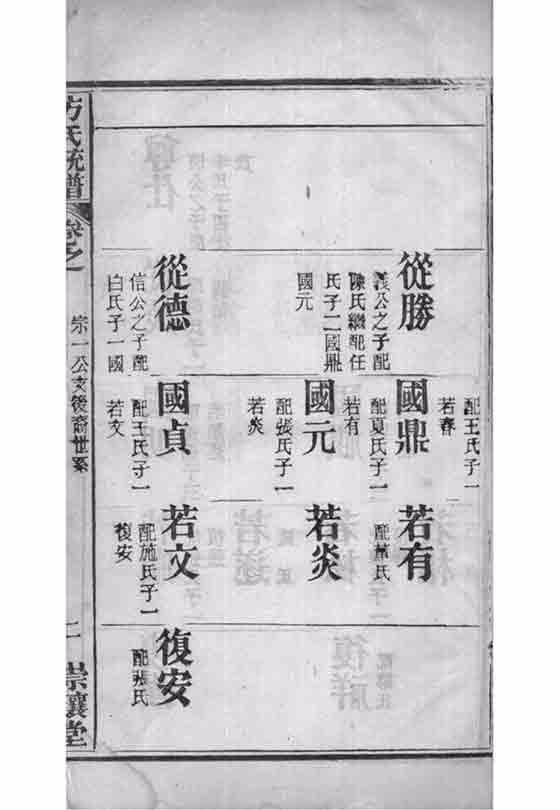 從勝
義公之子配
陳氏繼配任
氏子二國鼎
國元
從德
信公之子配
白氏子一國
配王氏子一
若春
國鼎
配夏氏子一
若有
國元
配張氏子一
若炎
國貞
配王氏子一
若文
若有
氏
若炎
若文
配施氏子一
復安
復安
配張氏
方氏統譜
卷之
宗一公支後裔世系
二
崇讓堂